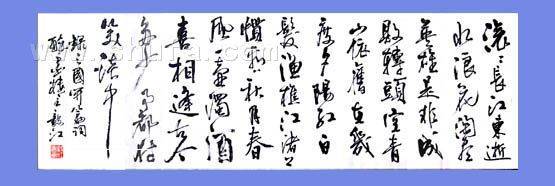 滚〻長江東逝
水浪花淘尽
英雄是非成
敗轉頭空青
山依舊在幾
度夕陽红白
髮渔樵江渚上
惯看秋月春
风一壶濁酒
喜相逢古今
多少事都付
笑谈中
録三國開篇词